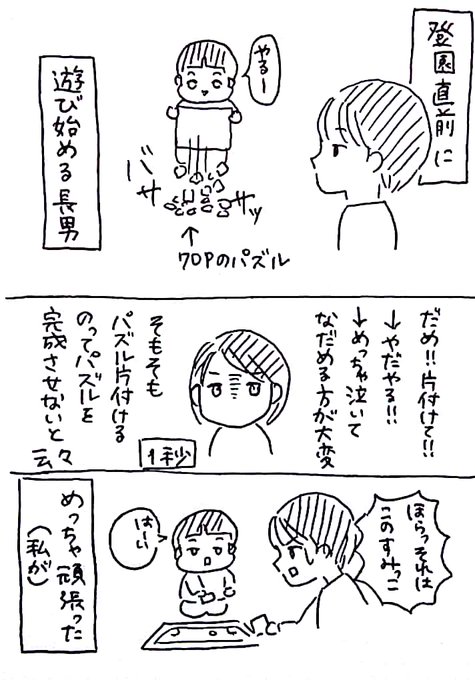 登園直前に
やるー
遊び始める長男
バサ
サッ
↑
70Pのパズル
だめ!!片付けて!!
↓やだやる!!
↓めっちゃ泣いて
なだめる方が大変
そもそも
パズル片付ける
のってパズルを
完成させないと
云々
1秒
ほらっそれは
このすみっこ
はーい
めっちゃ頑張った
(私が)